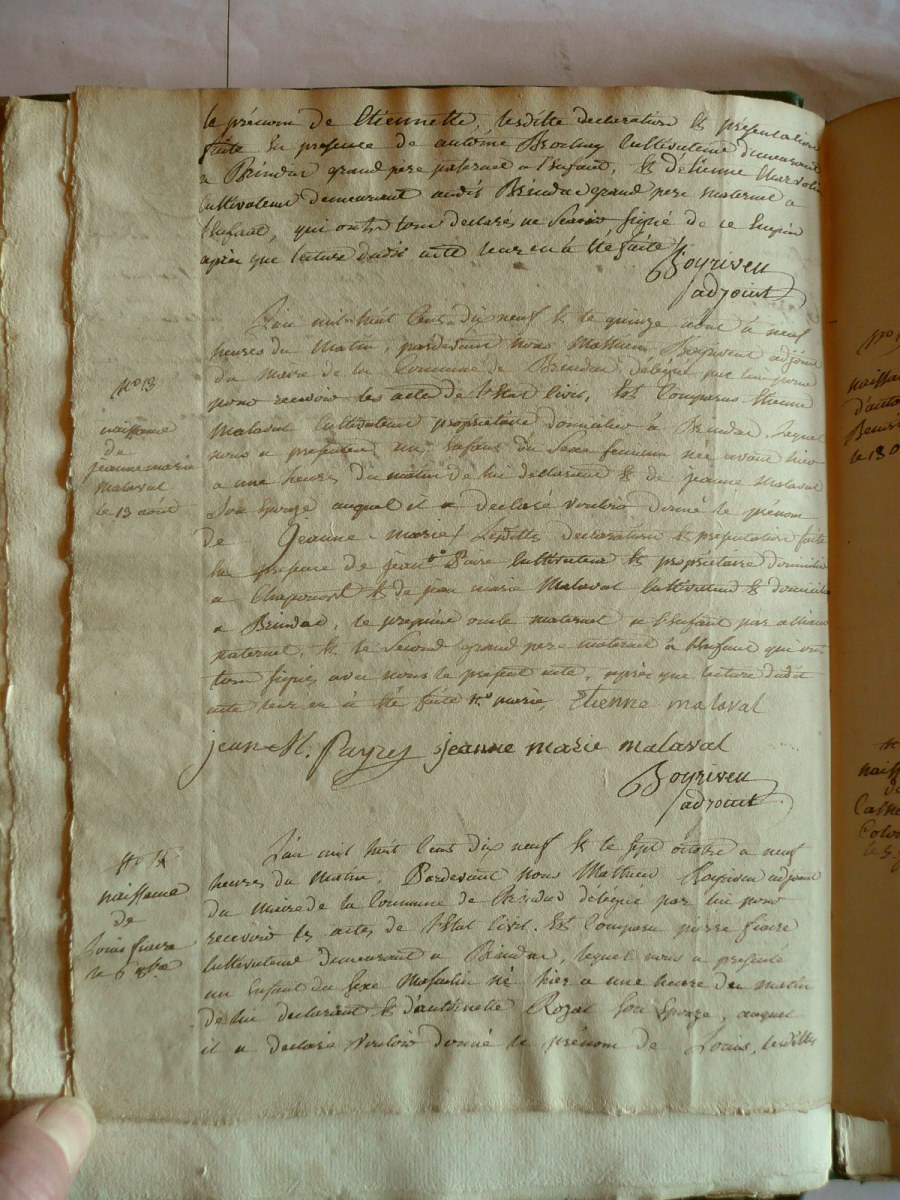 le prénom de Etiennette, lesditte declaration & présentation
faite en presence de antoine cultivateur demeurant
a Brindas grand père paternel a l'enfant, & d'étienne
cultivateur demeurant audit Brindas grand pere maternel a
l'enfant, qui ont tous declarés ne savoir signé de ce
après que lecture dudit acte leur en à été faite
Boyriven
adjoint
L'an mil huit cent dix neuf & le quinze aout à neuf
heures du matin, pardevant nous Mathieu Boyriven adjoint
du maire de la Commune de Brindas, délégué par lui pour
pour recevoir les acte de l'état civil, Est comparus Etienne
Malaval cultivateur propriétaire domicilié à Brindas, lequel
nous a présenté un enfant du sexe feminin née avant hier
a une heure du matin de lui declarant & de jeanne Malaval
son épouse auquel il a declaré vouloir donné le prénom
de Jeanne-marie, lesdittes declaration & présentation faite
en presence de jean cultivateur & propriétaire domicilié
a Chaponost & de jean marie Malaval cultivateur & domicilié
a Brindas, le premier oncle maternel a l'enfant par alliance
paternel, & le second grand pere maternel à l'enfant qui ont
tous signés avec nous le present acte, après que lecture dudit
acte leur en à été faite
Etienne malaval
jean M. Payre jeanne marie malaval
Boyriven
adjoint
N° 13
naissance
de
jeanne marie
Malaval
le 13 août
L'an mil huit cent dix neuf & le sept octobre a neuf
heures du matin, Pardevant nous Mathieu Boyriven adjoint
du maire de la Commune de Brindas délégué par lui pour
recevoir les actes de l'état civil. Est comparu pierre
cultivateur demeurant a Brindas, lequel nous a présenté
un enfant du sexe masculin né hier a une heure du matin
de lui declarant & d'antoinette Rozat son épouse, auquel
il a declaré vouloir donné le prénom de Louis, lesdittes
N° 14
naissance
de
Louis
le 6 8bre